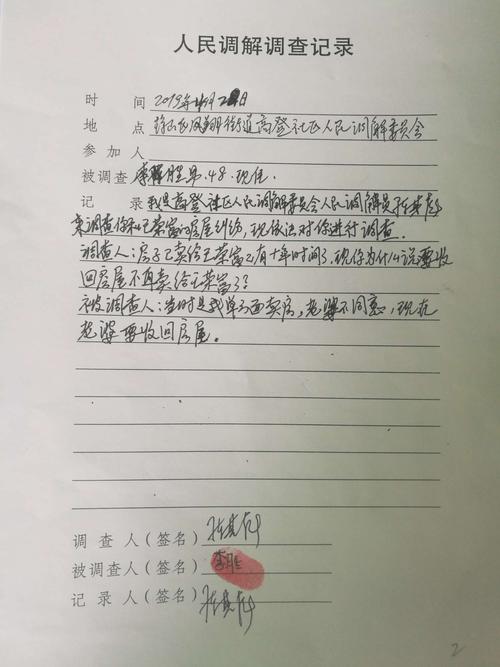 人民调解调查记录
时 间 2019年4月2日
地 点 凤翔街道高登社区人民调解委员会
参 加 人
被调查人 李胜 男.48.现住.
记 录 我是高登社区人民调解委员会人民调解员
来调查你和王荣富的房屋纠纷，现依法对你进行调查.
调查人：房子已卖给王荣富已有十年时间了，现你为什么说要收
回房屋不再卖给王荣富了？
被调查人：当时是我单方面卖房，老婆不同意，现在
老婆要收回房屋。
调 查 人（签名）
被调查人（签名）李胜
记 录 人（签名）
2